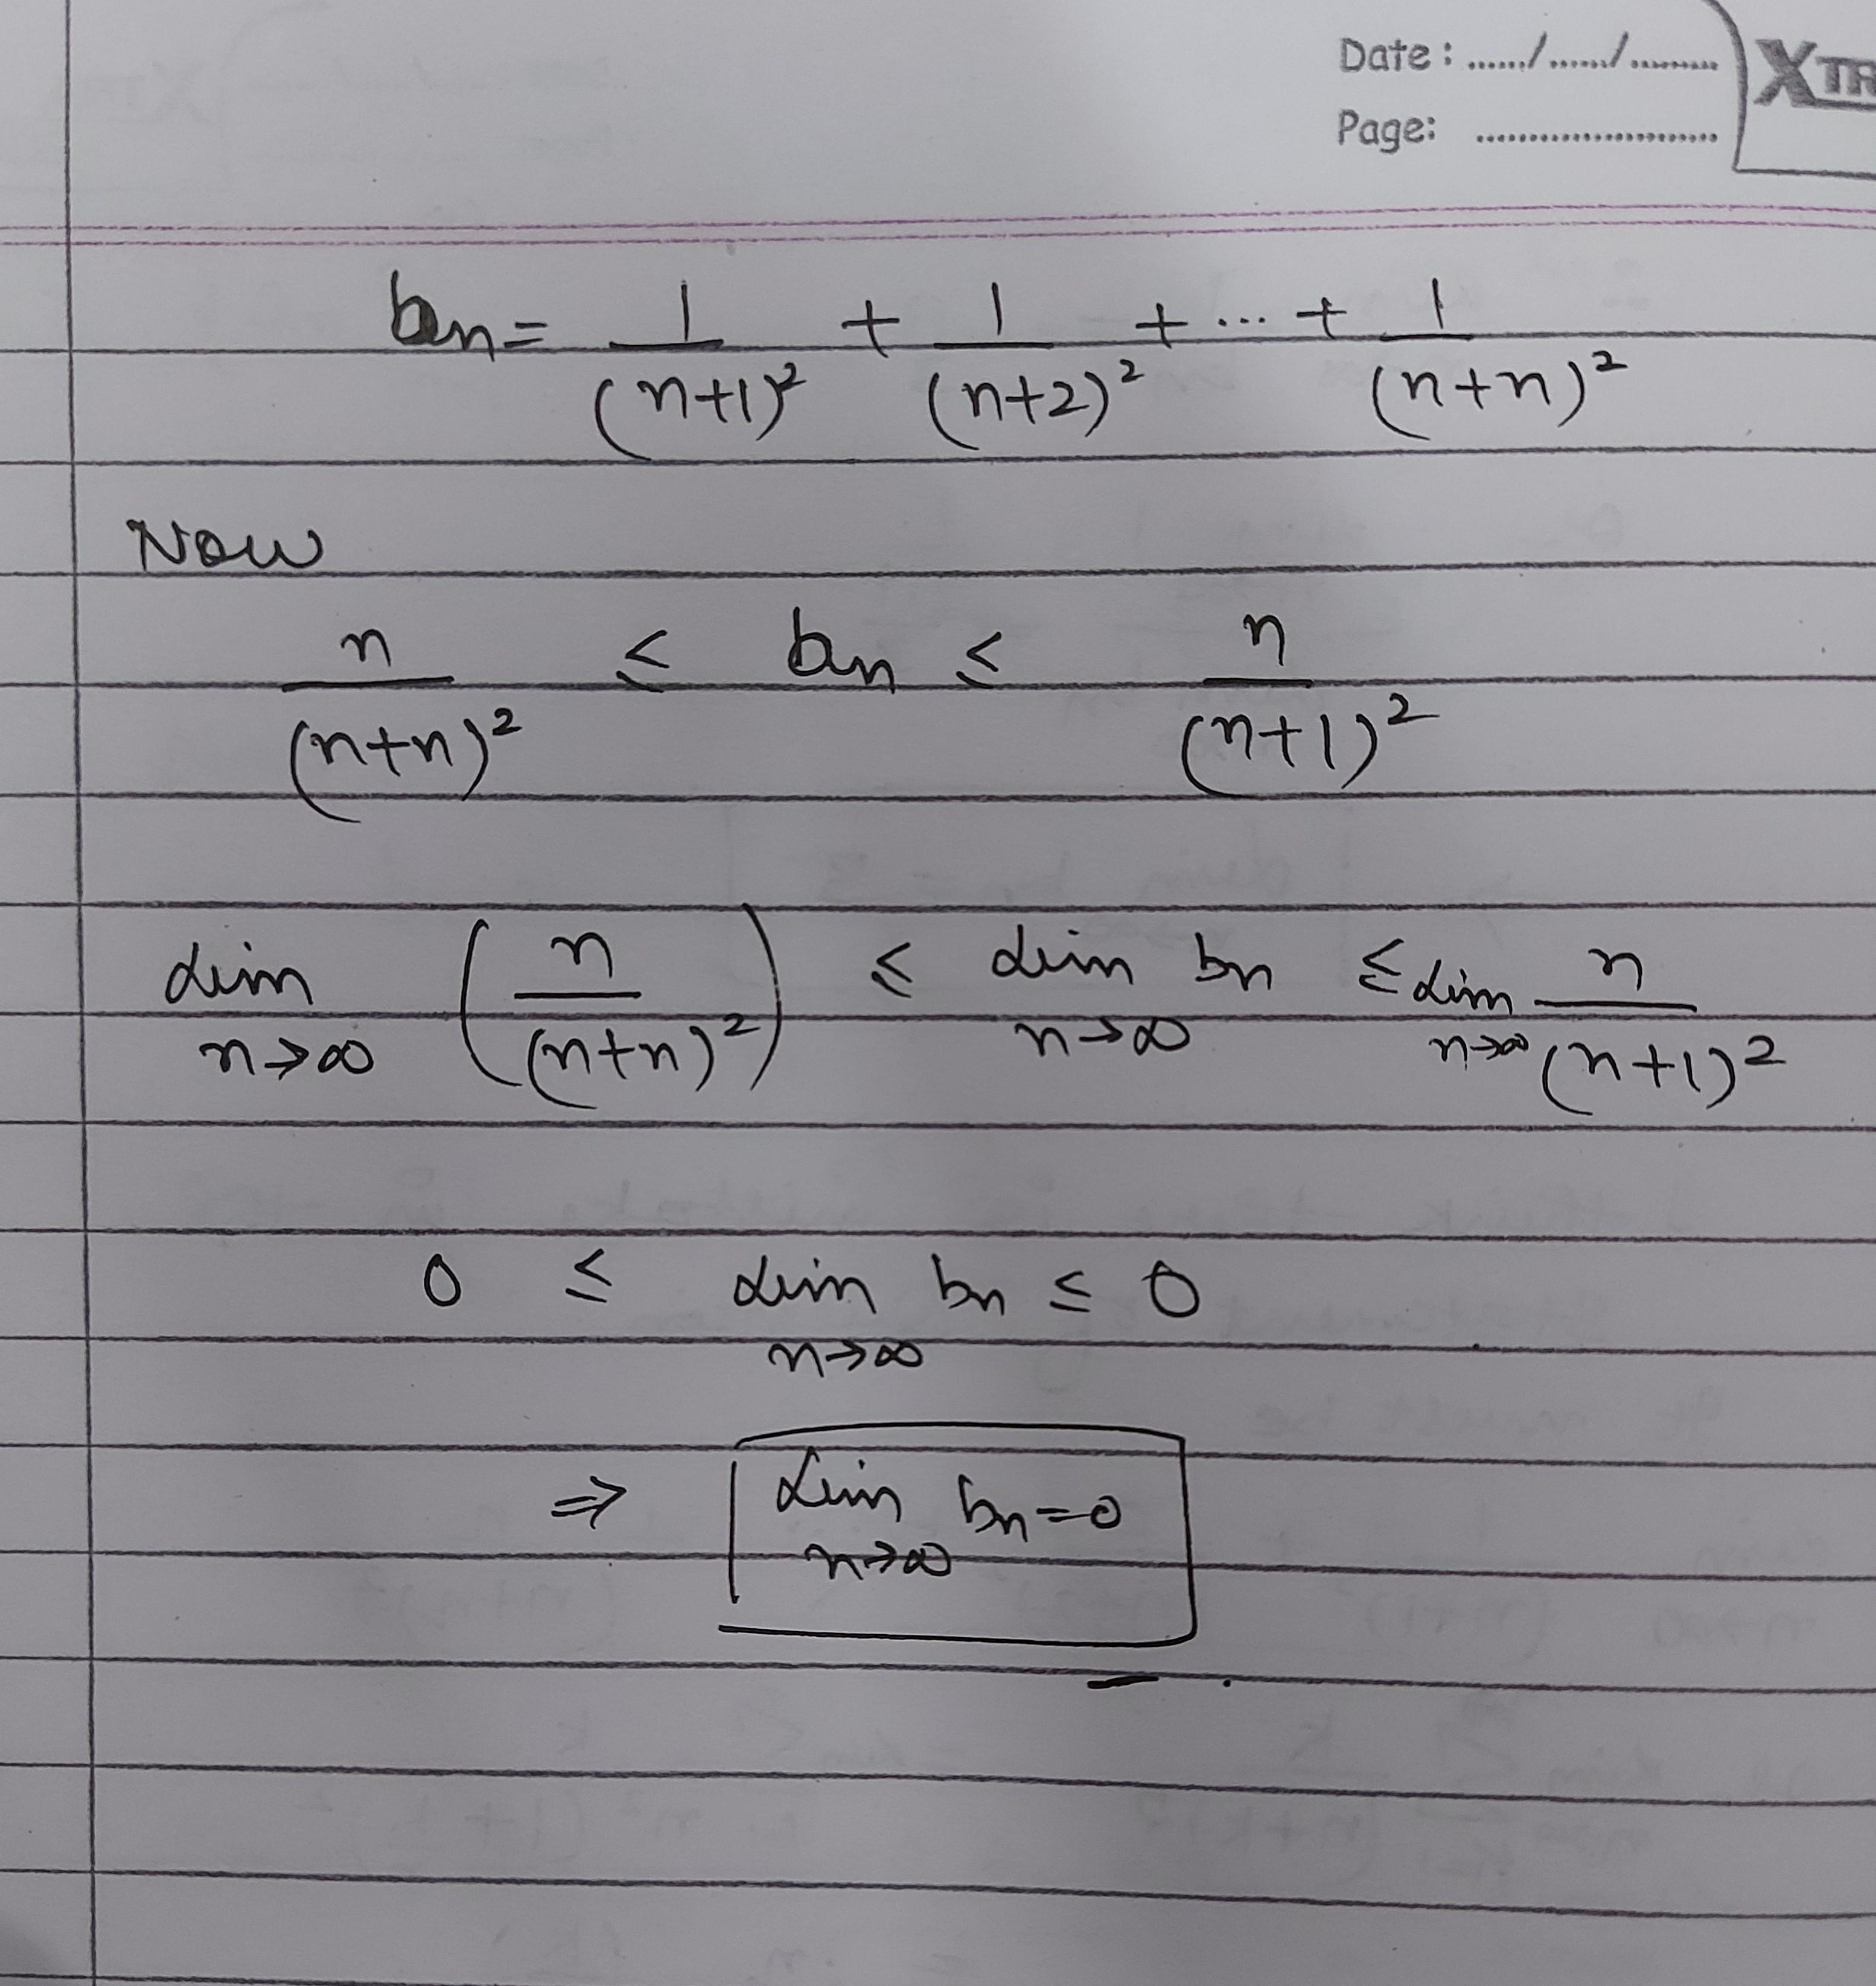 Date : ....../....../.........
XTR
Page: ........................
bn = 1/(n+1)² + 1/(n+2)² + ... + 1/(n+n)²
Now
n/(n+n)² ≤ bn ≤ n/(n+1)²
lim n→∞ (n/(n+n)²) ≤ lim n→∞ bn ≤ lim n→∞ n/(n+1)²
0 ≤ lim n→∞ bn ≤ 0
⇒ lim n→∞ bn = 0